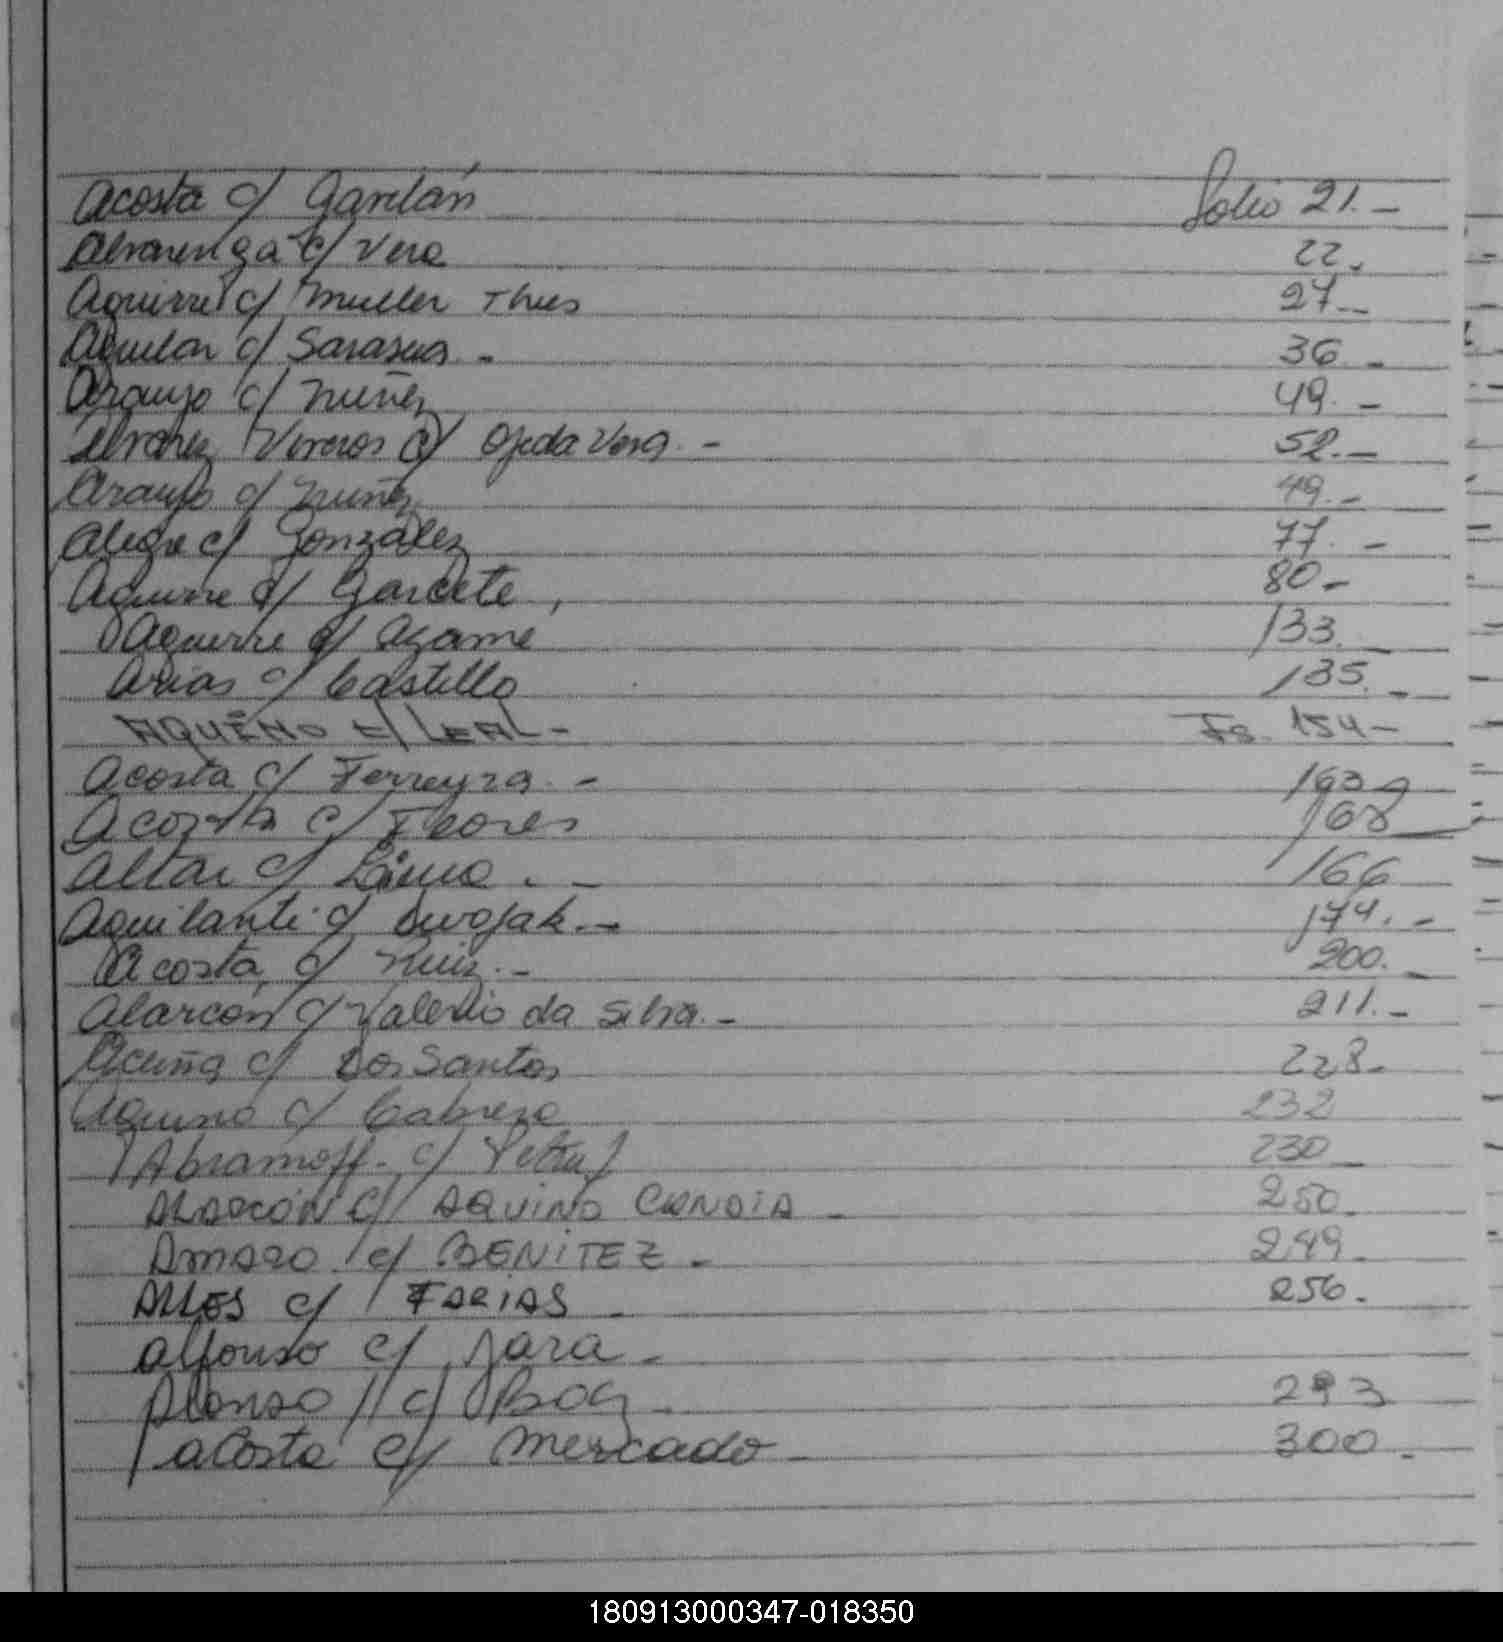 Acosta c/ Gavilán Folio 21.-
Alvarenga c/ Vera 22.
Aguirre c/ Muller Thies 27.-
Aguilar c/ Sarasua.- 36.-
Araujo c/ Nuñez 49.-
Alvarez Viveros c/ Ojeda Vera.- 52.-
Araujo c/ Nuñez 49.-
Alegre c/ González 77.-
Aguirre c/ Garcete, 80-
Aguirre c/ Azame 133.-
Arias c/ Castillo 135.-
AQUINO c/ LEAL- Fs. 154-
Acosta c/ Ferreyra.- 163
Acosta c/ Flores 168
c/ 166
Aquilanti c/ Dwojak.- 174.-
Acosta c/ Ruiz.- 200.-
Alarcón c/ Valerio da Silva.- 211.-
Acuña c/ Dos Santos 228-
Aquino c/ Cabrera 232
Abramoff- c/ 230-
ALARCÓN c/ AQUINO CANDIA- 250.
Amaro c/ BENÍTEZ- 249-
c/ FARIAS- 256.
Alfonso c/ Jara-
Alonso c/ 293
acosta c/ Mercado- 300.
180913000347-018350